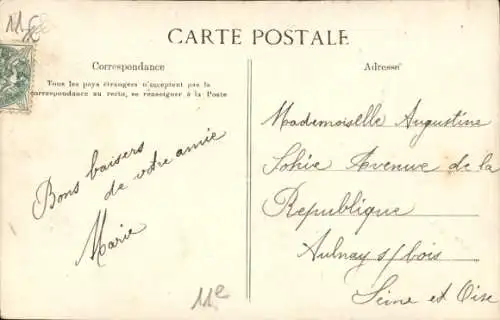 11-
CARTE POSTALE
Correspondance
Tous les pays étrangers n'acceptent pas la
correspondance au recto, se renseigner à la Poste
Bons baisers
de votre amie
Marie
11e
Adresse
Mademoiselle Augustine
Sohie Avenue de la
Republique
Aulnay s/bois
Seine et Oise